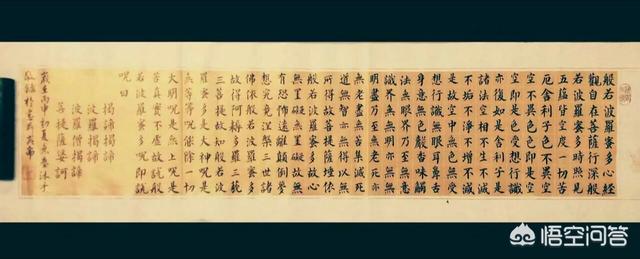 般若波羅蜜多心經
觀自在菩薩行深般
若波羅蜜多時照見
五蘊皆空度一切苦
厄舍利子色不異空
空不異色色即是空
空即是色受想行識
亦復如是舍利子是
諸法空相不生不滅
不垢不淨不增不減
是故空中無色無受
想行識無眼耳鼻舌
身意無色聲香味觸
法無眼界乃至無意
識界無無明亦無無
明盡乃至無老死亦
無老死盡無苦集滅
道無智亦無得以無
所得故菩提薩埵依
般若波羅蜜多故心
無罣礙無罣礙故無
有恐怖遠離顛倒夢
想究竟涅槃三世諸
佛依般若波羅蜜多
故得阿耨多羅三藐
三菩提故知般若波
羅蜜多是大神呪是
大明呪是無上呪是
無等等呪能除一切
苦真實不虛故說般
若波羅蜜多呪即說
呪曰
揭諦揭諦
波羅揭諦
波羅僧揭諦
菩提薩婆訶
歲在丙申初夏沐手
敬錄於
悟空问答